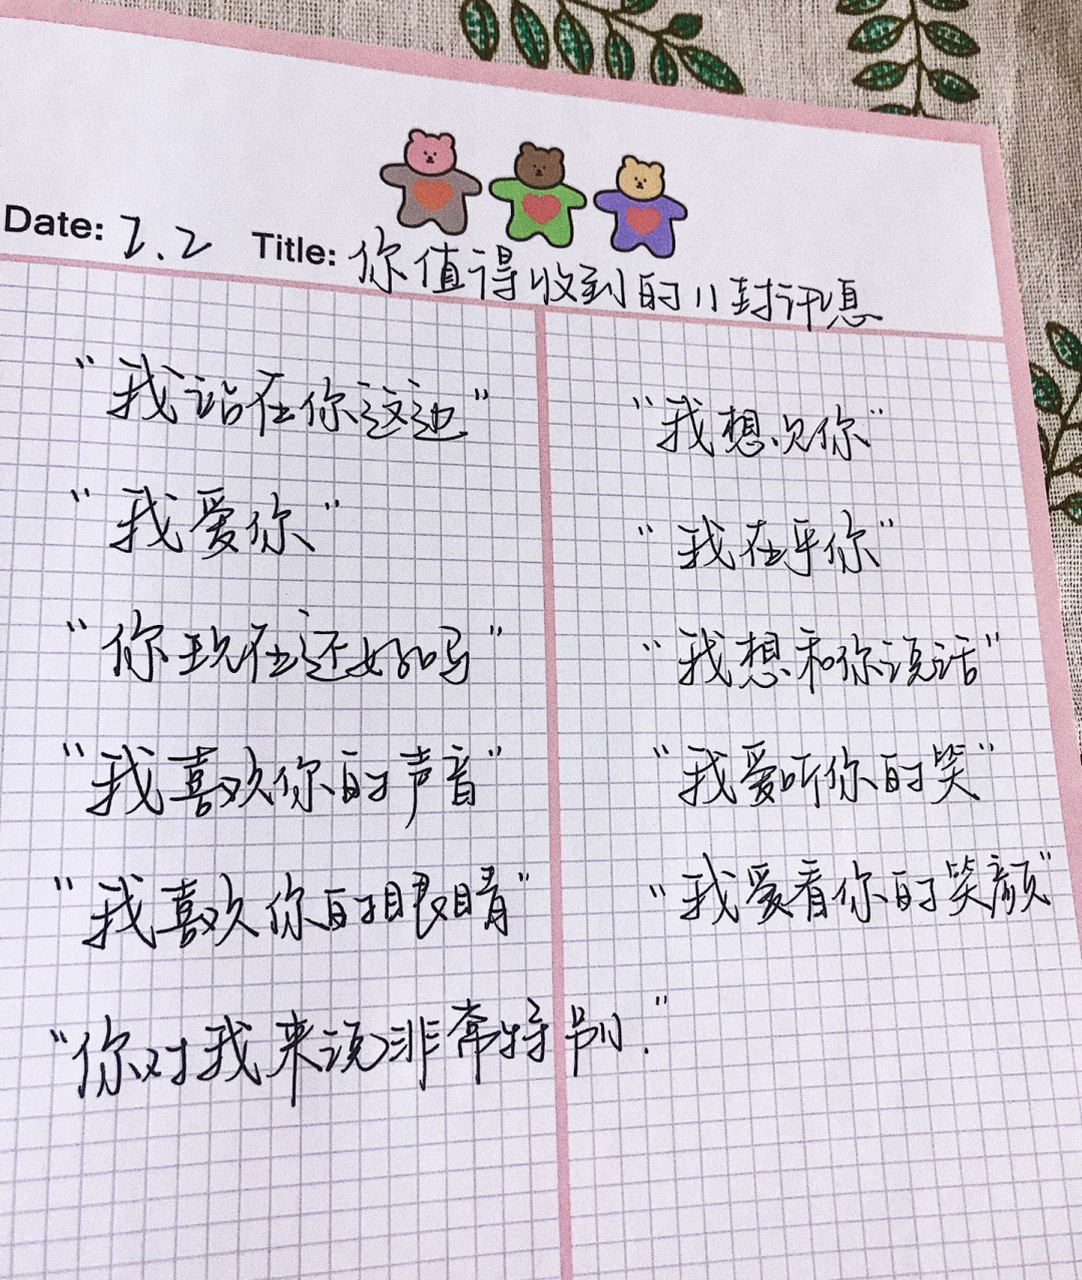 Date: 2.2 Title: 你值得收到的11封讯息
"我站在你这边"
"我爱你"
"你现在还好吗"
"我喜欢你的声音"
"我喜欢你的眼睛"
"你对我来说非常特别."
"我想见你"
"我在乎你"
"我想和你说话"
"我爱听你的笑"
"我爱看你的笑颜"